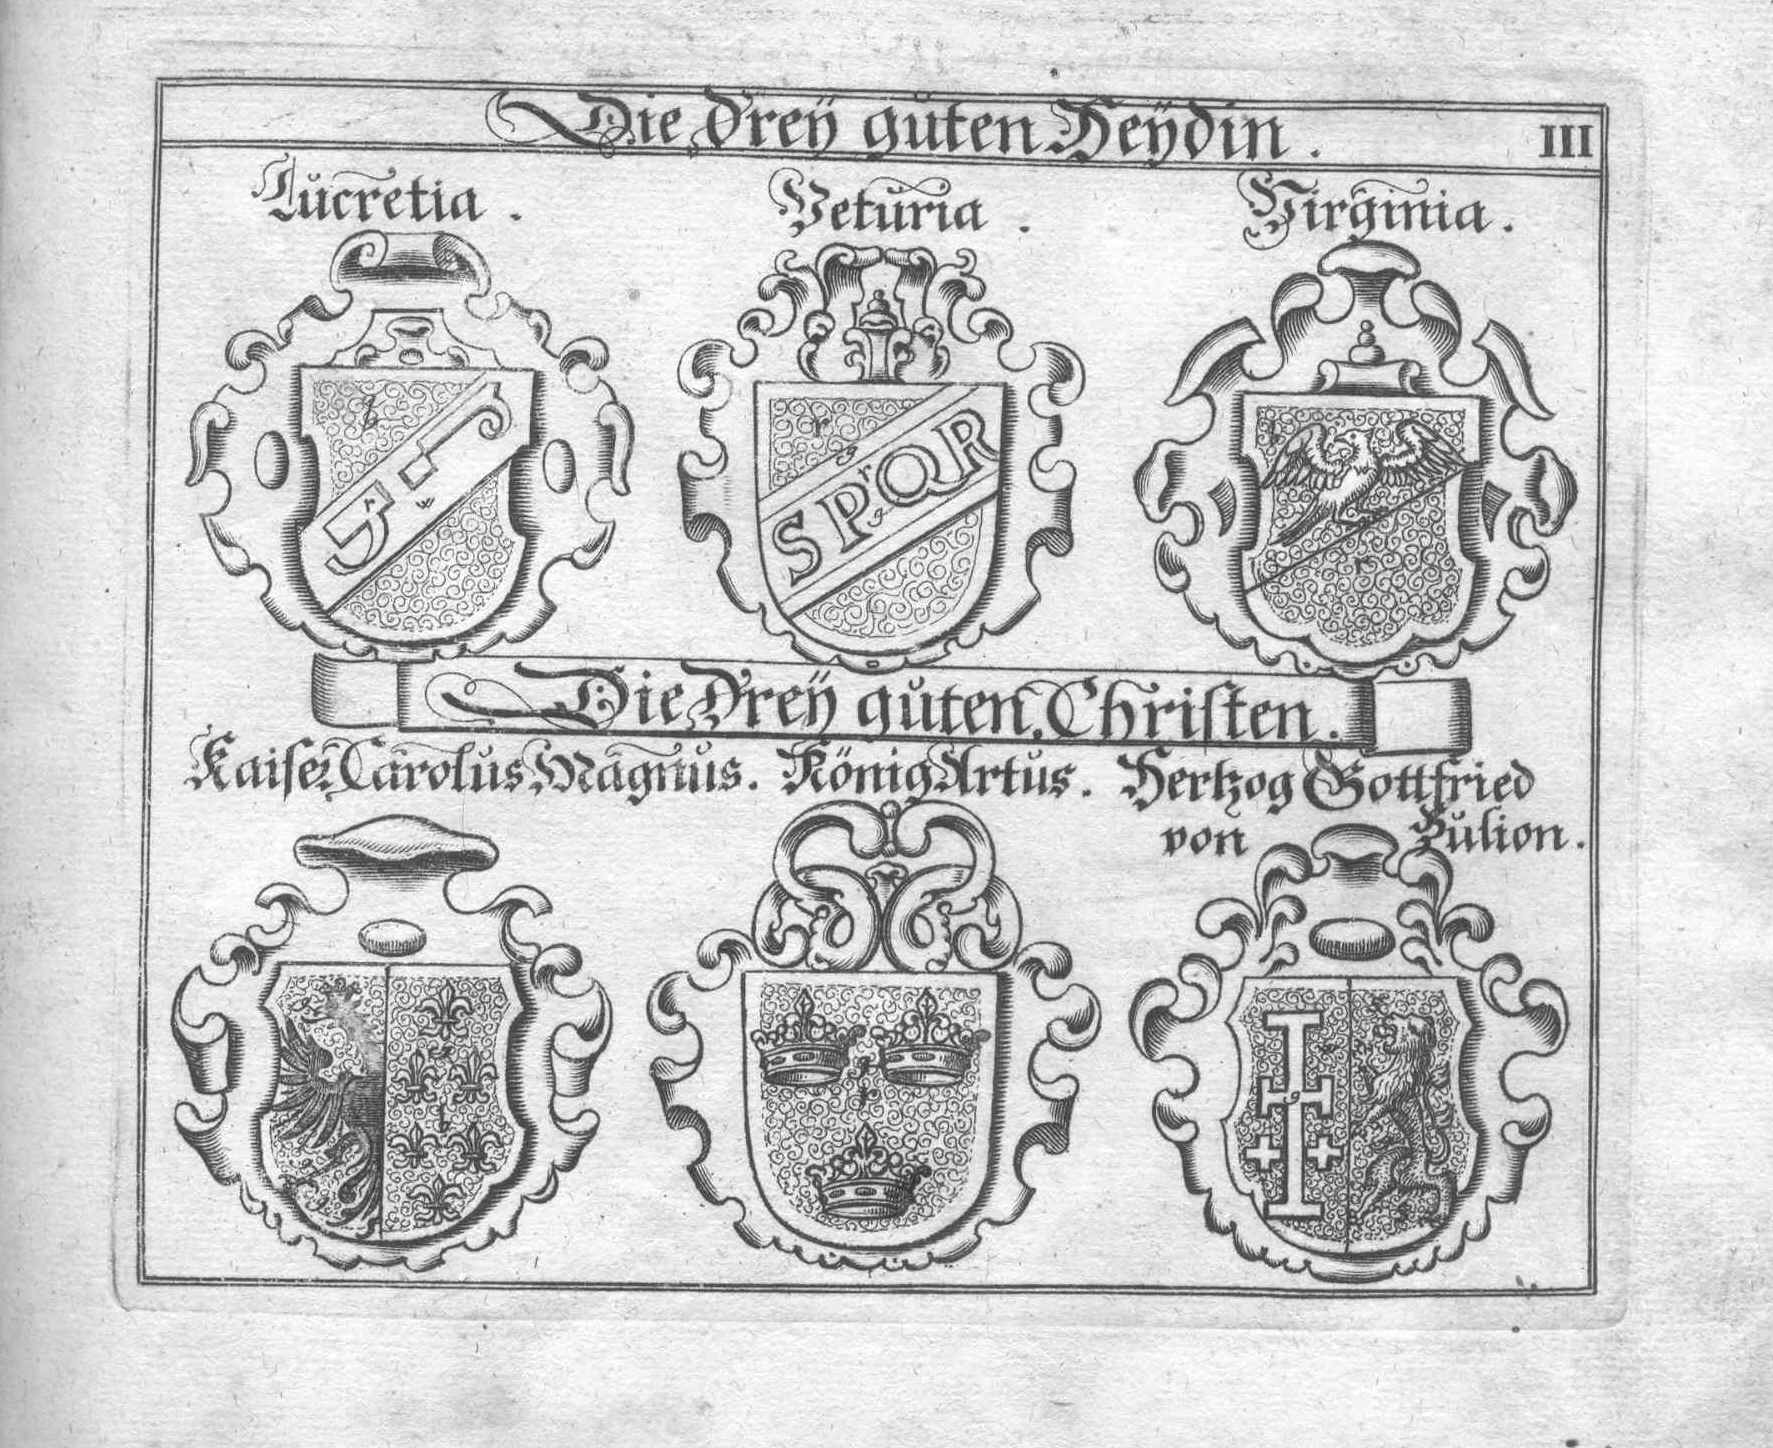 Die Dreÿ gůten Heÿdin.
III
Lůcretia.
Vetůria.
Virginia.
SPQR
Die Dreÿ gůten Christen.
Kaiser Carolůs Magnůs. König Artůs. Hertzog Gottfried
von Bůlion.